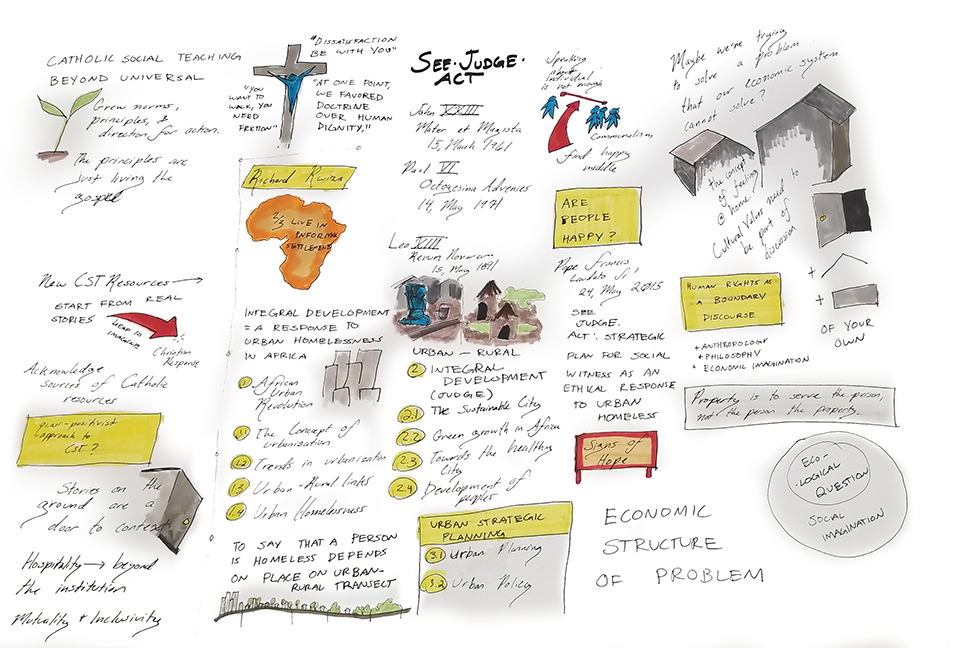 CATHOLIC SOCIAL TEACHING
BEYOND UNIVERSAL
Grew norms,
principles, &
direction for action.
The principles are
just living the
gospel
New CST Resources
START FROM REAL
STORIES
LEAD TO
Christian
Response
Acknowledge
sources of Catholic
resources
post-positivist
approach to
CST?
Stories on the
ground are a
door to context
Hospitality → beyond
the institution
Mutuality + Inclusivity
"DISSATISFACTION
BE WITH YOU"
"YOU
WANT TO
WALK, YOU
NEED
FRICTION"
"AT ONE POINT,
WE FAVORED
DOCTRINE
OVER HUMAN
DIGNITY,"
Richard Rwiza
2/3 LIVE IN
INFORMAL
SETTLEMENT
INTEGRAL DEVELOPMENT
= A RESPONSE TO
URBAN HOMELESSNESS
IN AFRICA
1 African
Urban
Revolution
1.1 The Concept of
urbanization
1.2 Trends in urbanization
1.3 Urban-Rural links
1.4 Urban Homelessness
TO SAY THAT A PERSON
IS HOMELESS DEPENDS
ON PLACE ON URBAN-
RURAL TRANSECT
SEE·JUDGE·
ACT
John XXIII
Mater et Magista
15, March 1961
Paul VI
Octogesima Advenies
14, May 1971
Leo XIII
Rerum Novarum
15, May 1891
URBAN — RURAL
2 INTEGRAL
DEVELOPMENT
(JUDGE)
2.1 The Sustainable City
2.2 Green growth in Africa
2.3 Towards the healthy
City
2.4 Development of
peoples
URBAN STRATEGIC
PLANNING
3.1 Urban Planning
3.2 Urban Policy
Speaking
about
individual
is not enough
Communalism
find happy
middle
ARE
PEOPLE
HAPPY?
Pope Francis
Laudato Si'
24, May 2015
SEE
JUDGE.
ACT: STRATEGIC
PLAN FOR SOCIAL
WITNESS AS AN
ETHICAL RESPONSE
TO URBAN
HOMELESS
Signs of
Hope
ECONOMIC
STRUCTURE
OF PROBLEM
Maybe we're trying
to solve a problem
that our economic system
cannot solve?
the concept
of feeling
@ home
Cultural Values need to
be part of
discussion
HUMAN RIGHTS AS
A BOUNDARY
DISCOURSE
+ ANTHROPOLOGY
+ PHILOSOPHY
+ ECONOMIC IMAGINATION
+
+
OF YOUR
OWN
Property is to serve the person,
not the person the property.
ECO-
-LOGICAL
QUESTION
SOCIAL
IMAGINATION